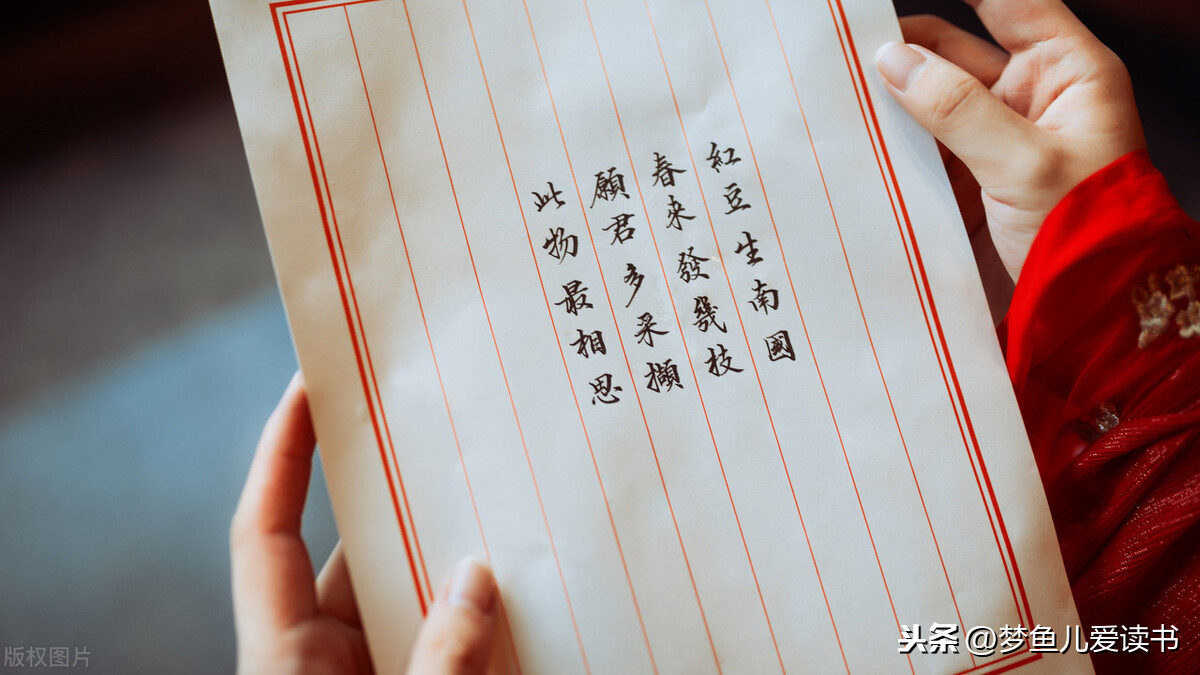 紅豆生南國
春来發幾枝
願君多采擷
此物最相思
版权图片
头条 @梦鱼儿爱读书